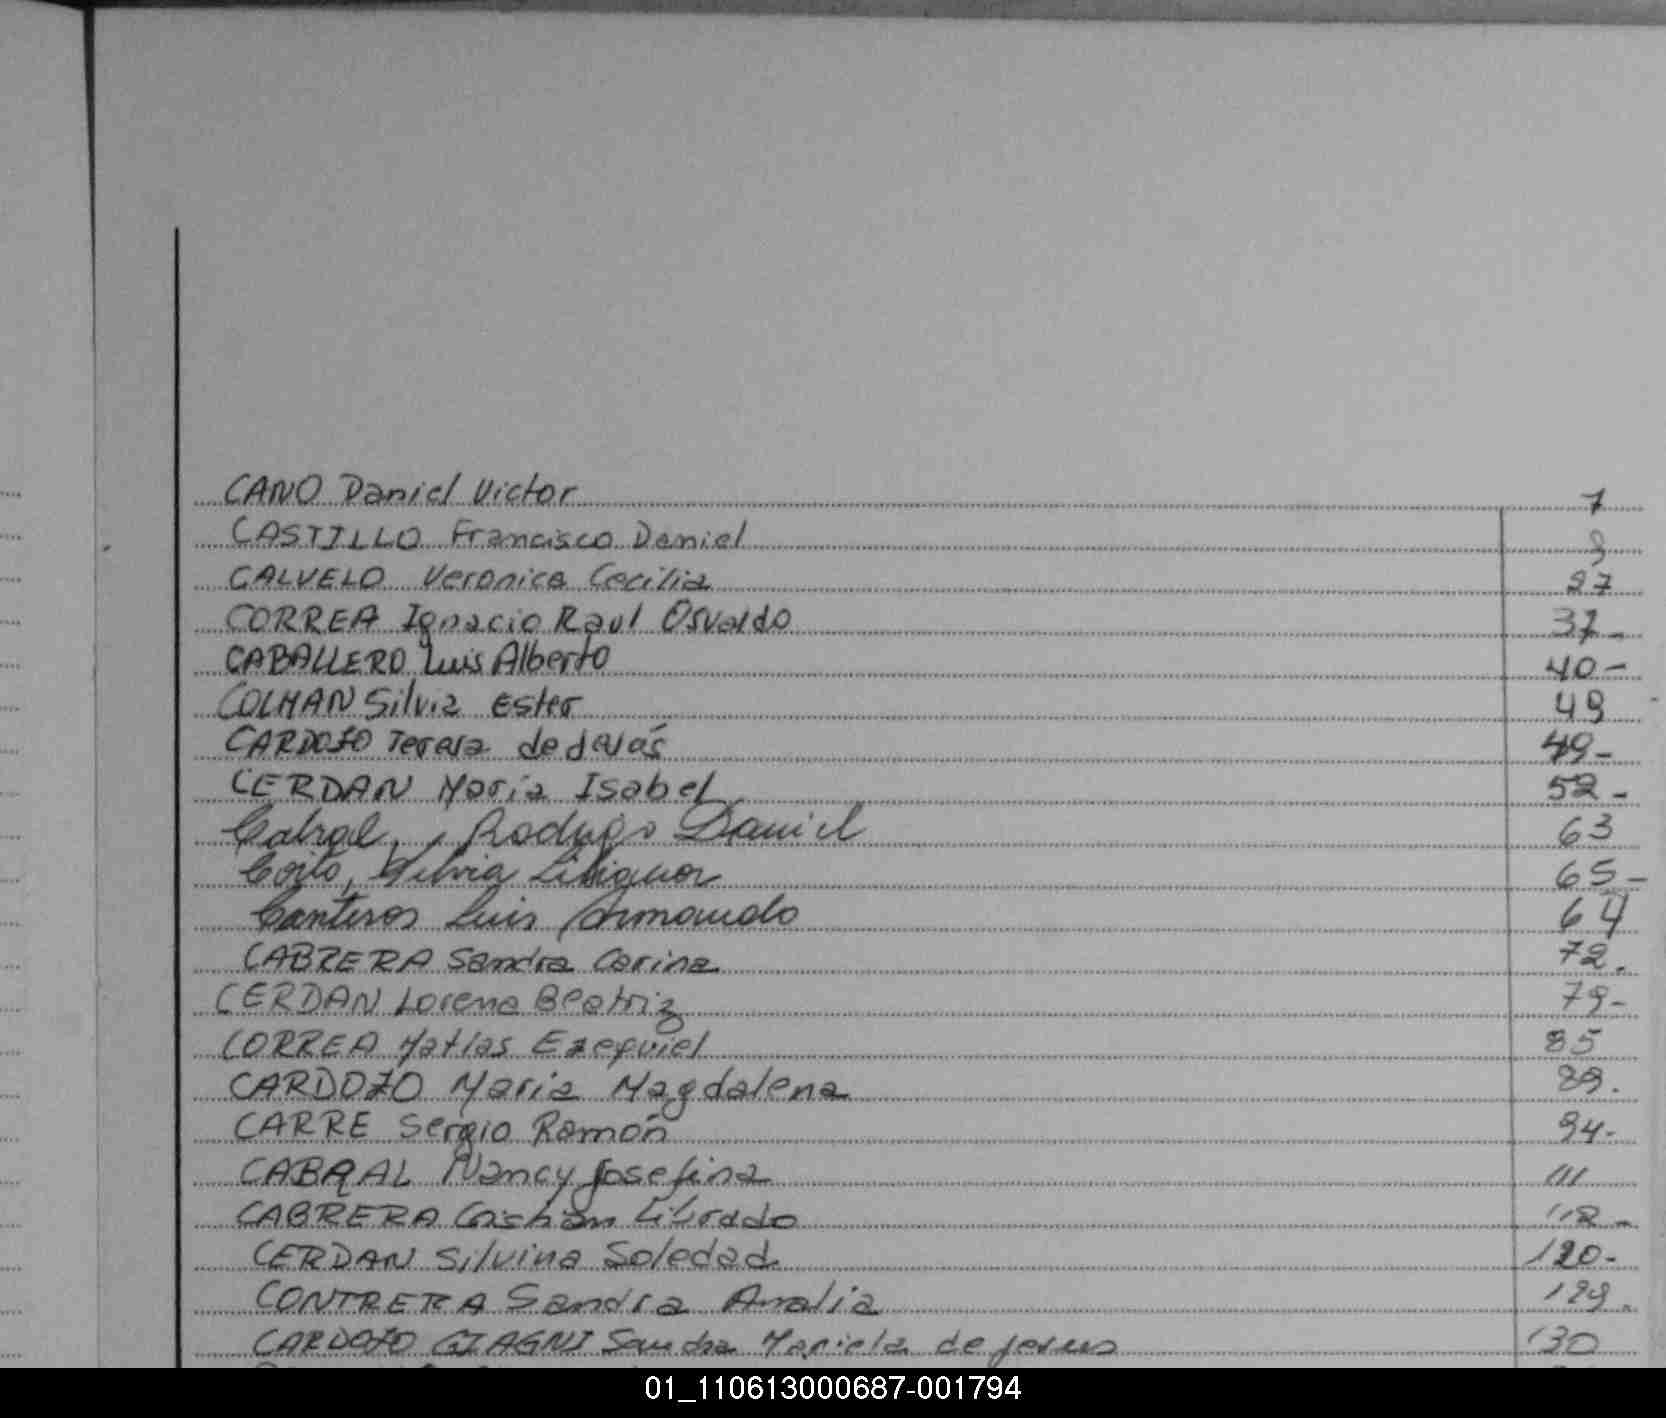 CANO Daniel Victor 7
CASTILLO Francisco Daniel 9
CALVELO Veronica Cecilia 27
CORREA Ignacio Raul Osvaldo 37-
CABALLERO, Luis Alberto 40-
COLMAN Silvia Ester 49
CARDOZO Teresa de Jesús 49-
CERDAN María Isabel 52-
Cabral, Rodrigo Daniel 63
Silvia 65-
Canteros Luis Armando 64
CABRERA Sandra Carina 72.
CERDAN Lorena Beatriz 79-
CORREA Matias Ezequiel 85
CARDOZO Maria Magdalena 89.
CARRE Sergio Ramón 94-
CABRAL Nancy Josefina 111
CABRERA Cristian Librado 118-
CERDAN Silvina Soledad 120-
CONTRERA Sandra Analia 129.
CARDOZO GIAGNI Sandra Mariela de Jesus 130
01_110613000687-001794